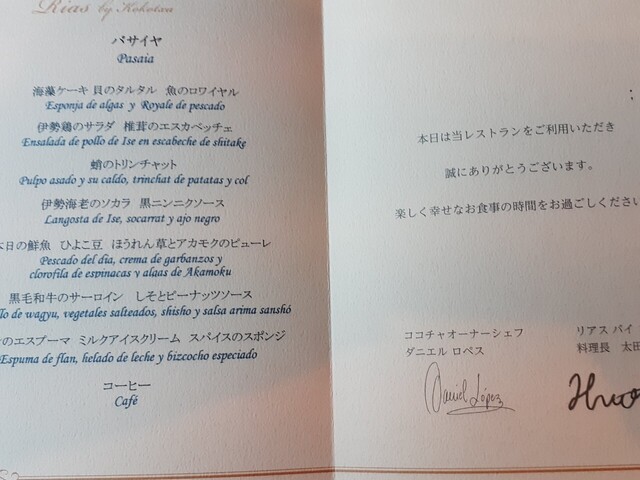 Rias by Kokotxa
パサイヤ
Pasaia
海藻ケーキ 貝のタルタル 魚のロワイヤル
Esponja de algas y Royale de pescado
伊勢鶏のサラダ 椎茸のエスカベッチェ
Ensalada de pollo de Ise en escabeche de shitake
蛸のトリンチャット
Pulpo asado y su caldo, trinchat de patatas y col
伊勢海老のソカラ 黒ニンニクソース
Langosta de Ise, socarrat y ajo negro
本日の鮮魚 ひよこ豆 ほうれん草とアカモクのピューレ
Pescado del dia, crema de garbanzos y
clorofila de espinacas y algas de Akamoku
黒毛和牛のサーロイン しそとピーナッツソース
lo de wagyu, vegetales salteados, shisho y salsa arima sanshó
のエスプーマ ミルクアイスクリーム スパイスのスポンジ
Espuma de flan, helado de leche y bizcocho especiado
コーヒー
Café
本日は当レストランをご利用いただき
誠にありがとうございます。
楽しく幸せなお食事の時間をお過ごしください
ココチャオーナーシェフ
ダニエル ロペス
Daniel López
リアス バイ
料理長 太田